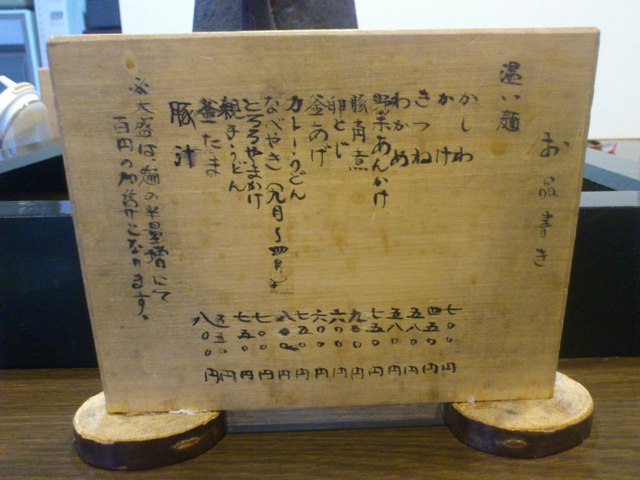 お品書き
温い麺
かしわ 七〇〇円
かけ 四五〇円
きつね 五八〇円
わかめ 五八〇円
野菜あんかけ 七五〇円
豚角煮 九〇〇円
卵とじ 六〇〇円
釜あげ 六〇〇円
カレーうどん 七五〇円
なべやき(九月〜四月) 八〇〇円
とろろやまかけ 七〇〇円
親子うどん 七五〇円
釜たま 五五〇円
豚汁 八〇〇円
※大盛は、麺の半量増にて
百円の加算になります。